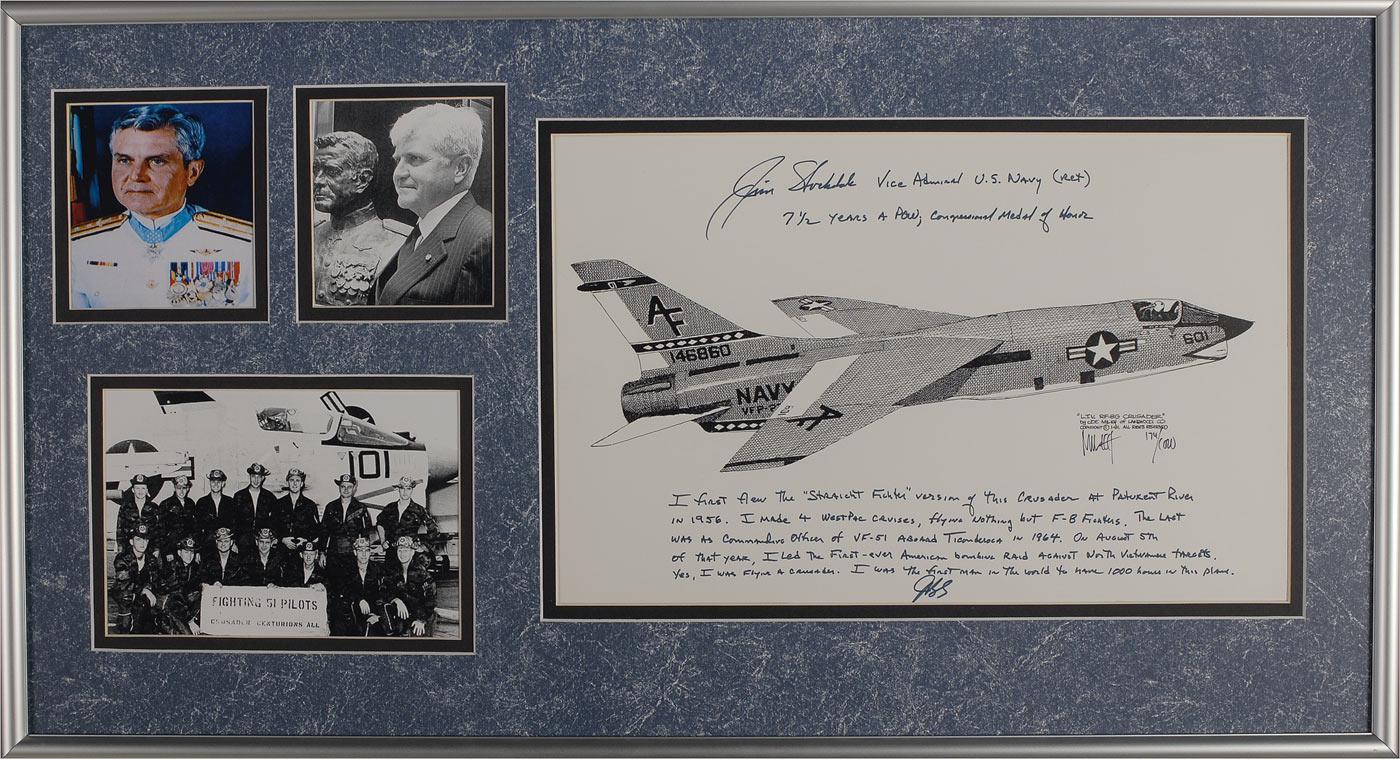 Jim Stockdale Vice Admiral U.S. Navy (ret)
7 1/2 years a POW; Congressional Medal of Honor
AF
146860
NAVY
VFP-
A
601
"L.T.V. RF-8G CRUSADER"
ALL RIGHTS RESERVED
174/1000
101
FIGHTING 51 PILOTS
CRUSADER CENTURIONS ALL
I first flew the "Straight Fighter" version of this Crusader at Patuxent River
in 1956. I made 4 WestPac cruises, flying nothing but F-8 Fighters. The last
was as Commanding Officer of VF-51 aboard Ticonderoga in 1964. On August 5th
of that year, I led the first-ever American bombing raid against North Vietnamese targets.
Yes, I was flying a Crusader. I was the first man in the world to have 1000 hours in this plane.
JBS